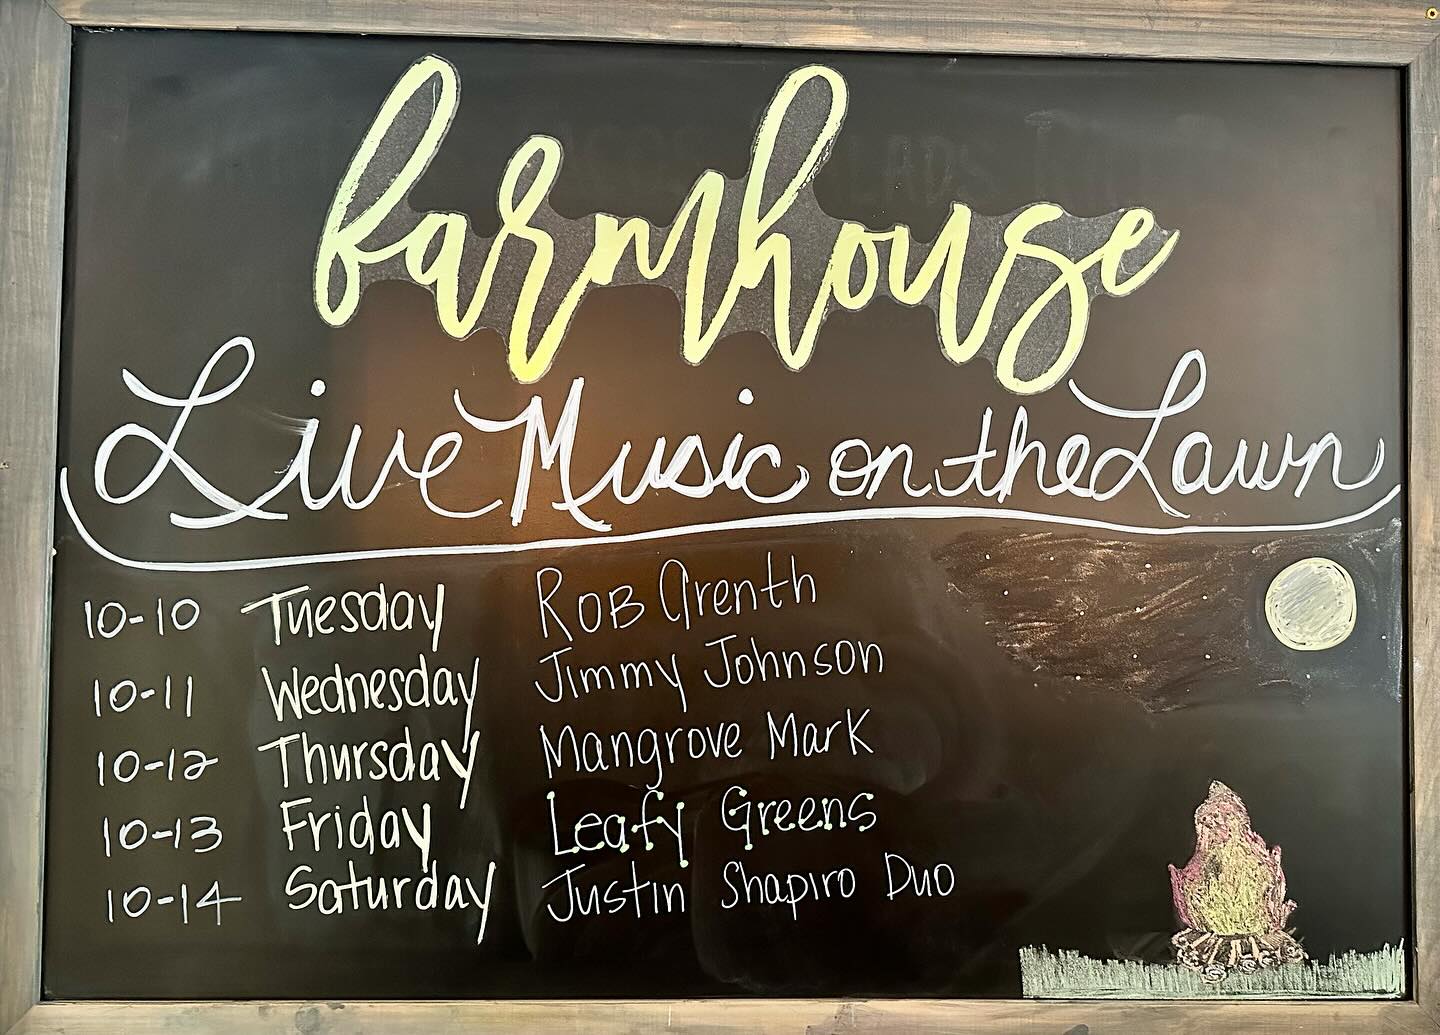 farmhouse
Live Music on the Lawn
10-10 Tuesday Rob Arenth
10-11 Wednesday Jimmy Johnson
10-12 Thursday Mangrove Mark
10-13 Friday Leafy Greens
10-14 Saturday Justin Shapiro Duo